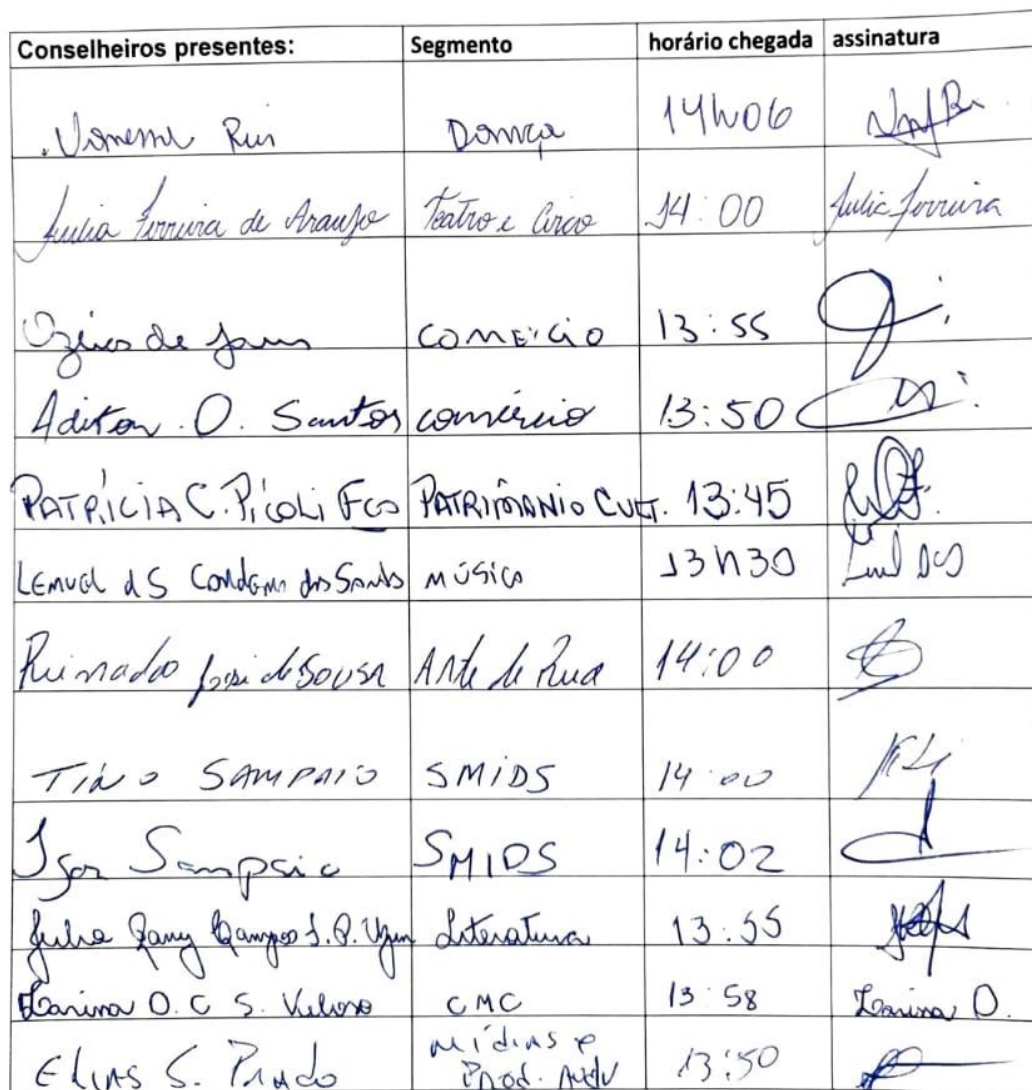 Conselheiros presentes: Segmento horário chegada assinatura
Vanessa Dança 14h06
Julia Ferreira de Araujo Teatro e Circo 14:00 Julia Ferreira
de comércio 13:55
Aditon O. Santos comércio 13:50
PATRÍCIA C. PÍCOLI FCO PATRIMÔNIO CULT. 13:45
LEMUEL dos Santos MÚSICA 13h30
José de SOUSA Arte de Rua 14:00
SAMPAIO SMIDS 14:00
Igor Sampaio SMIDS 14:02
Campos Literatura 13:55
O. C S. Veloso CMC 13:58
ELIAS S. Prado mídias e
Prod. Audv 13:50